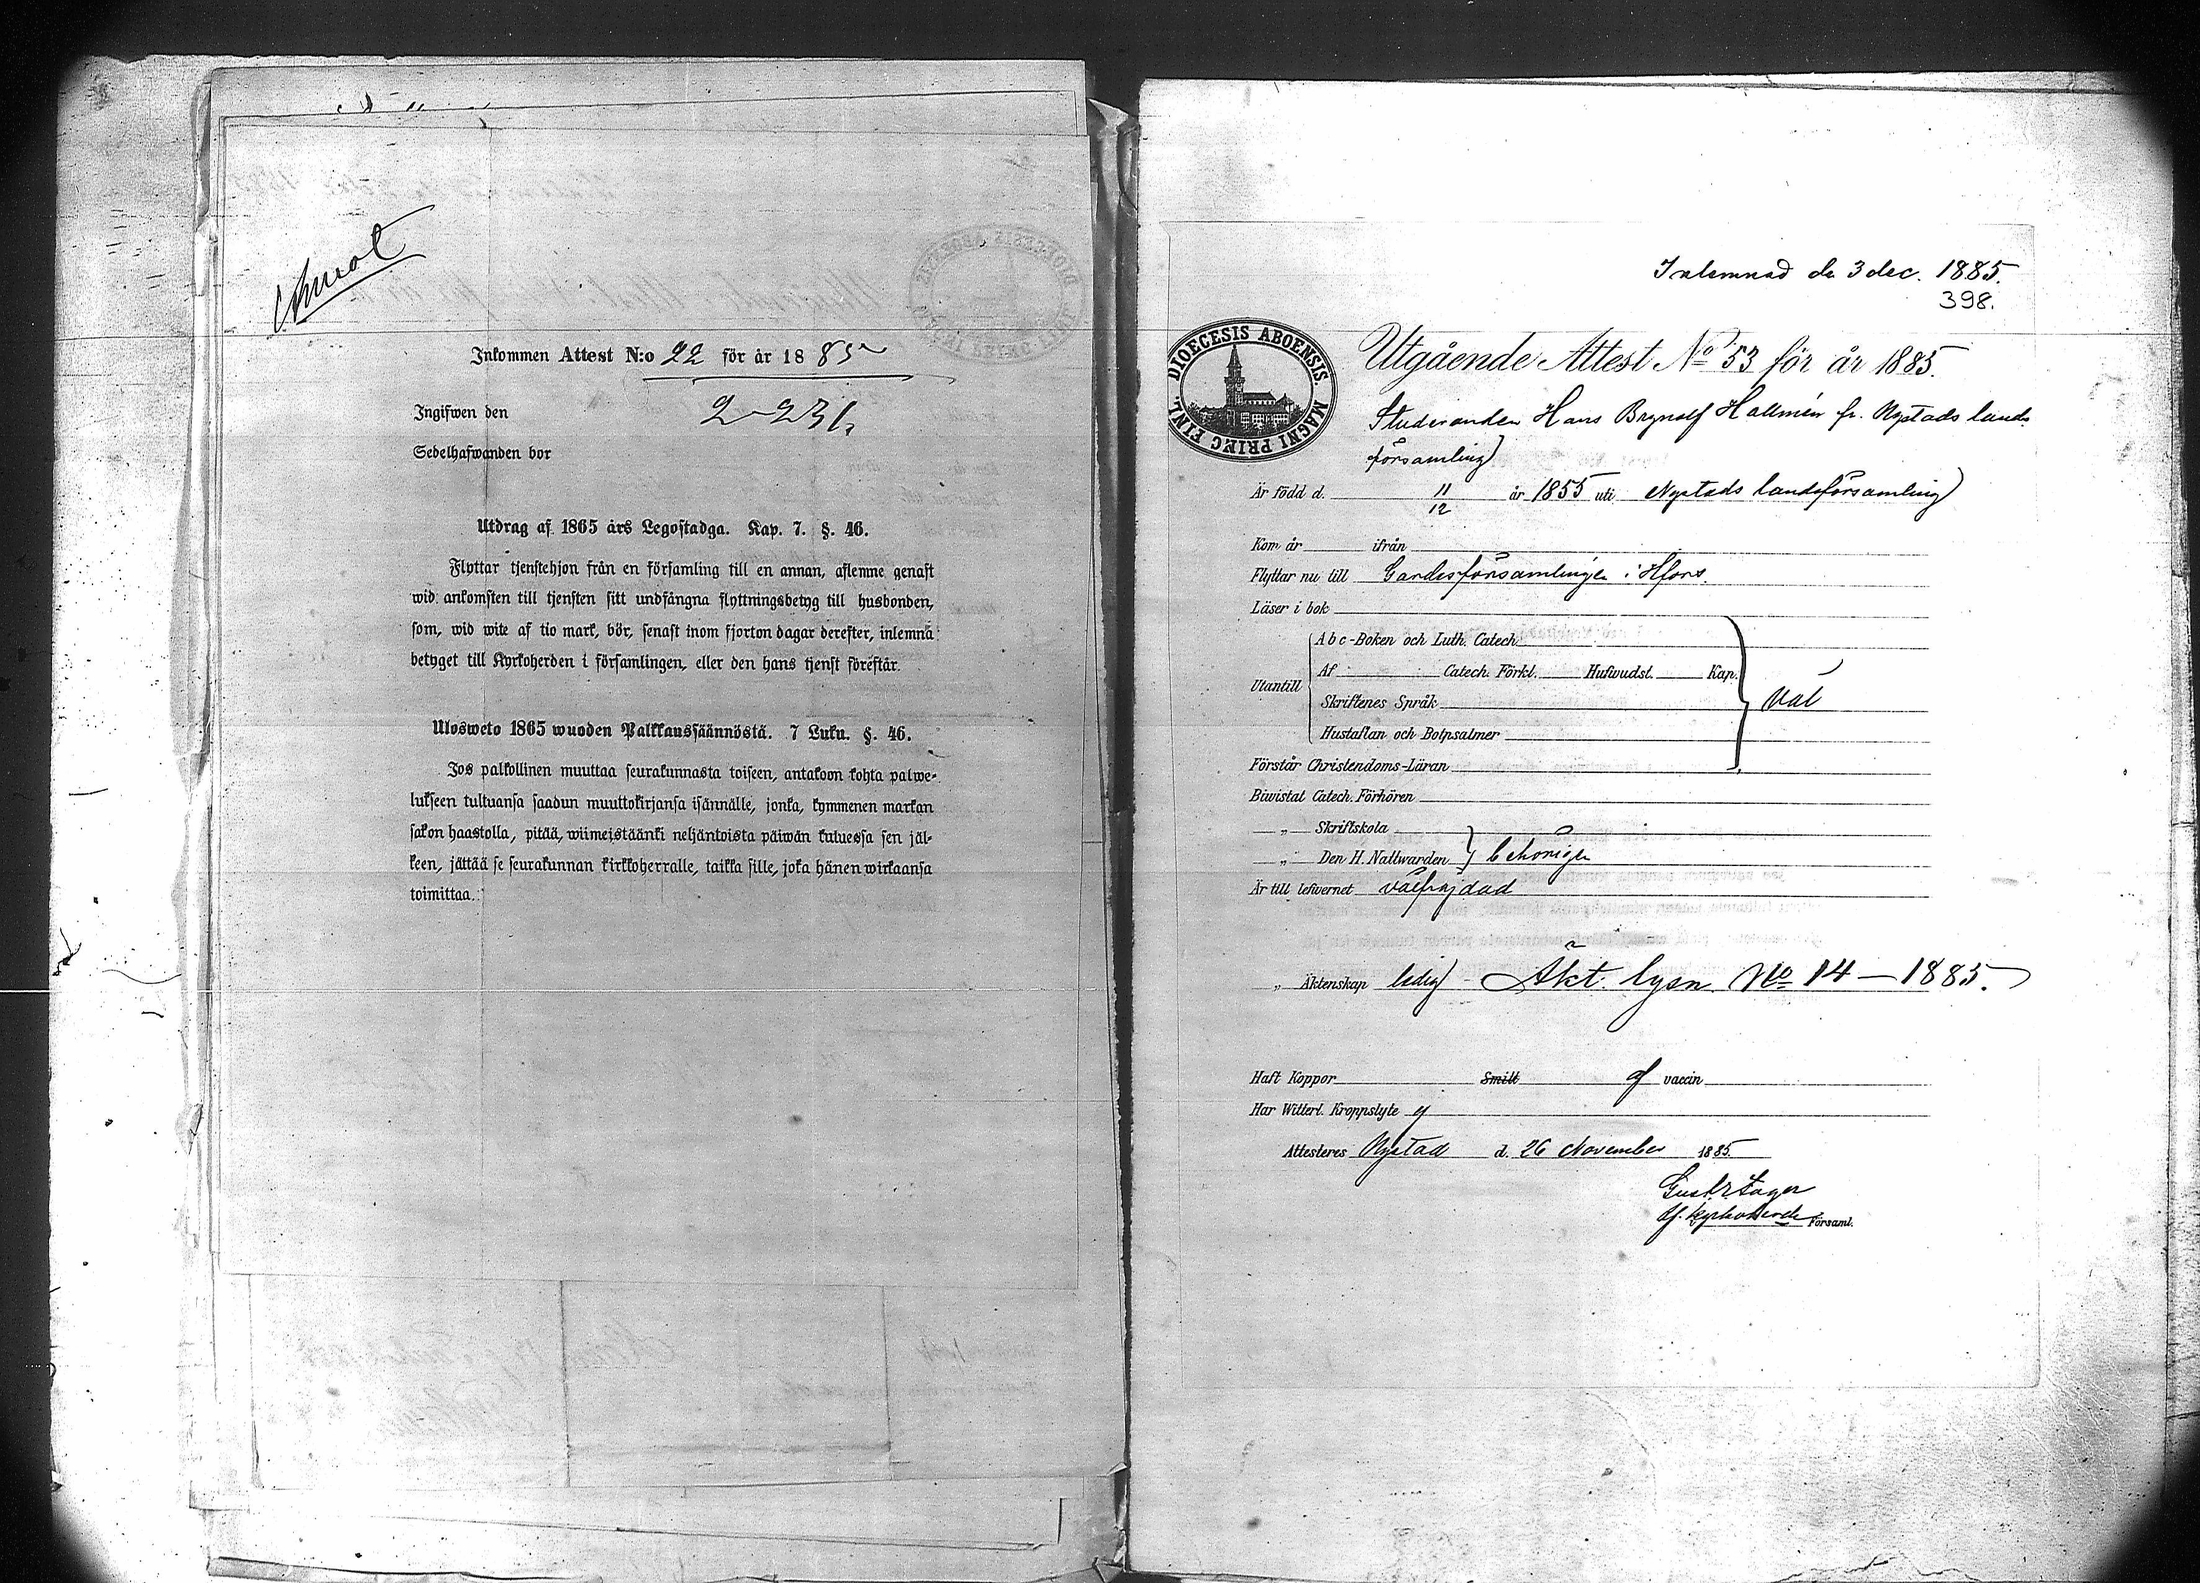 Inkommen Attest N:o 22 för år 1885
Ingifwen den
2-231,
Sedelhafwanden bor
Utdrag af 1865 års Legostadga. Kap. 7. §. 46.
Flyttar tjenstehjon från en församling till en annan, aflemne genast
wid ankomsten till tjensten sitt undfångna flyttningsbetyg till husbonden,
som, wid wite af tio mark, bör, senast inom fjorton dagar derefter, inlemna
betyget till Kyrkoherden i församlingen, eller den hans tjenst förestår.
Ulosweto 1865 wuoden Palkkaussäännöstä. 7 Luku. §. 46.
Jos palkollinen muuttaa seurakunnasta toiseen, antakoon kohta palwe-
lukseen tultuansa saadun muuttokirjansa isännälle, jonka, kymmenen markan
sakon haastolla, pitää, wiimeistäänki neljäntoista päiwän kuluessa sen jäl-
keen, jättää se seurakunnan kirkkoherralle, taikka sille, joka hänen wirkaansa
toimittaa.
Inlemnad de 3 dec. 1885.
398.
DIOECESIS ABOENSIS. MAGNI PRINC FINL.
Utgående Attest No 53 för år 1885.
Studeranden Hans Brynolf Hallmén fr. Nystads lands
församling
Är född d. 11/12 år 1855 uti Nystads landsförsamling
Kom år ifrån
Flyttar nu till Gardesförsamlingen i Hfors
Läser i bok
Abc-Boken och Luth. Catech.
Utantill
Af Catech. Förkl. Hufwudst. Kap.
Skriftenes Språk
Val
Hustaflan och Botpsalmer
Förstår Christendoms-Läran
Biwistat Catech. Förhören
„ Skriftskola
„ Den H. Nattwarden behörigen
Är till lefwernet välfrejdad
„ Äktenskap ledig - Äkt. lysn. No 14 — 1885.
Haft Koppor Smitt af vaccin
Har Witterl. Kroppslyte ej
Attesteres Nystad d. 26 November 1885.
Församl.